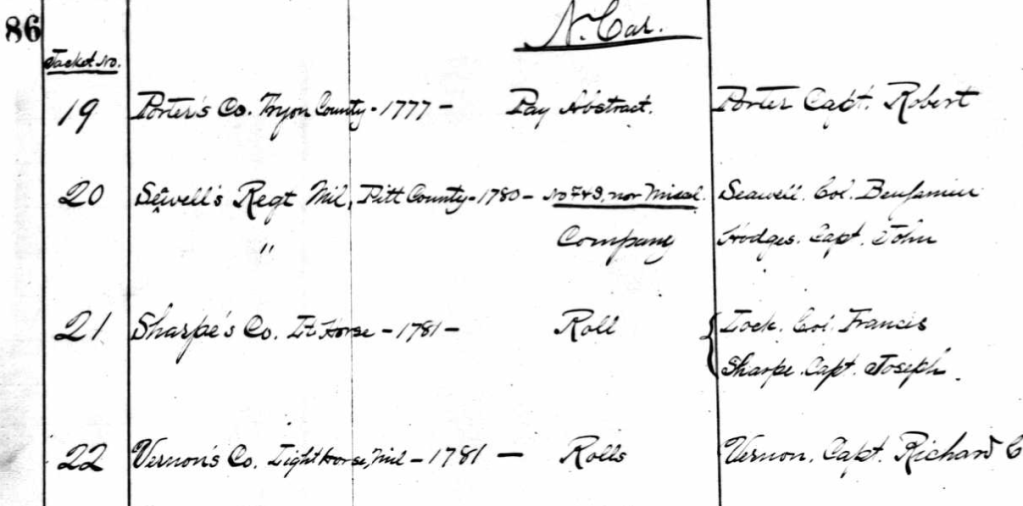 86
N. Car.
Jacket No.
19 Porter's Co. Tryon County - 1777 - Pay Abstract. Porter Capt. Robert
20 Sewell's Regt Mil, Pitt County - 1780 - Seawell. Col. Benjamin
" Company Hodges. Capt. John
21 Sharpe's Co. Lt Horse - 1781 - Roll Lock. Col. Francis
Sharpe. Capt. Joseph.
22 Vernon's Co. Light Horse, Mil - 1781 - Rolls Vernon. Capt. Richard C